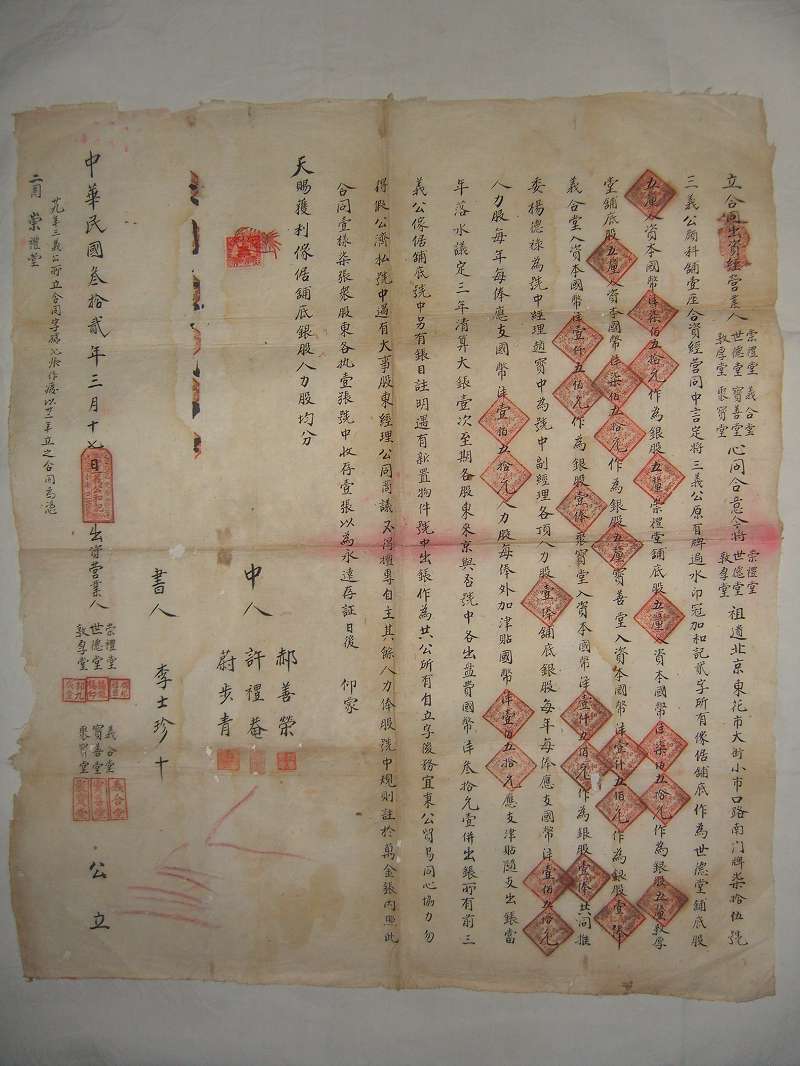 立合同出資經營業人 崇禮堂 義合堂 世德堂 寳善堂 敦厚堂 聚賢堂 心同合意今將 崇禮堂 世德堂 敦厚堂 祖遺北京東花市大街小市口路南门牌柒拾伍號
三義公顏料舖壹座合資經營同中言定將三義公原有牌匾水印冠加和記貳字所有傢俱舖底作為世德堂舖底股
五厘入資本國幣洋柒佰五拾元作為銀股五厘崇禮堂舖底股五厘入資本國幣洋柒佰五拾元作為銀股五厘敦厚
堂舖底股五厘入資本國幣洋柒佰五拾元作為銀股五厘寳善堂入資本國幣洋壹仟五佰元作為銀股壹俸
義合堂入資本國幣洋壹仟五佰元作為銀股壹俸聚賢堂入資本國幣洋壹仟五佰元作為銀股壹俸共同推
委楊德祿為號中經理趙寳中為號中副經理各頂人力股壹俸舖底銀股每年每俸應支國幣洋壹佰五拾元
人力股每年每俸應支國幣洋壹佰五拾元人力股每俸外加津貼國幣洋壹佰五拾元應支津貼隨支出賬當
年落水議定三年清算大賬壹次至期各股東來京與否號中各出盤費國幣洋叁拾元壹併出賬所有前三
義公傢俱舖底號中另有賬目註明遇有新置物件號中出賬作為共公所有自立字後務宜東公貿易同心協力勿
得假公濟私號中遇有大事股東經理公同商議不得擅專自主其餘人力俸股號中規則註於萬金賬內照此
合同壹樣柒張衆股東各执壹張號中收存壹張以為永遠存証日後 仰蒙
天賜獲利傢俱舖底銀股人力股均分
中人 郝善榮 許禮菴 蔚步青
書人 李士珍 十
中華民國叁拾貳年三月十七日 出資營業人 崇禮堂 世德堂 敦厚堂 義合堂 寳善堂 聚賢堂 公立
廿九年三義公所立合同字據七張作廢以廿二年立之合同為憑
崇禮堂
義合堂
寳善堂
聚賢堂